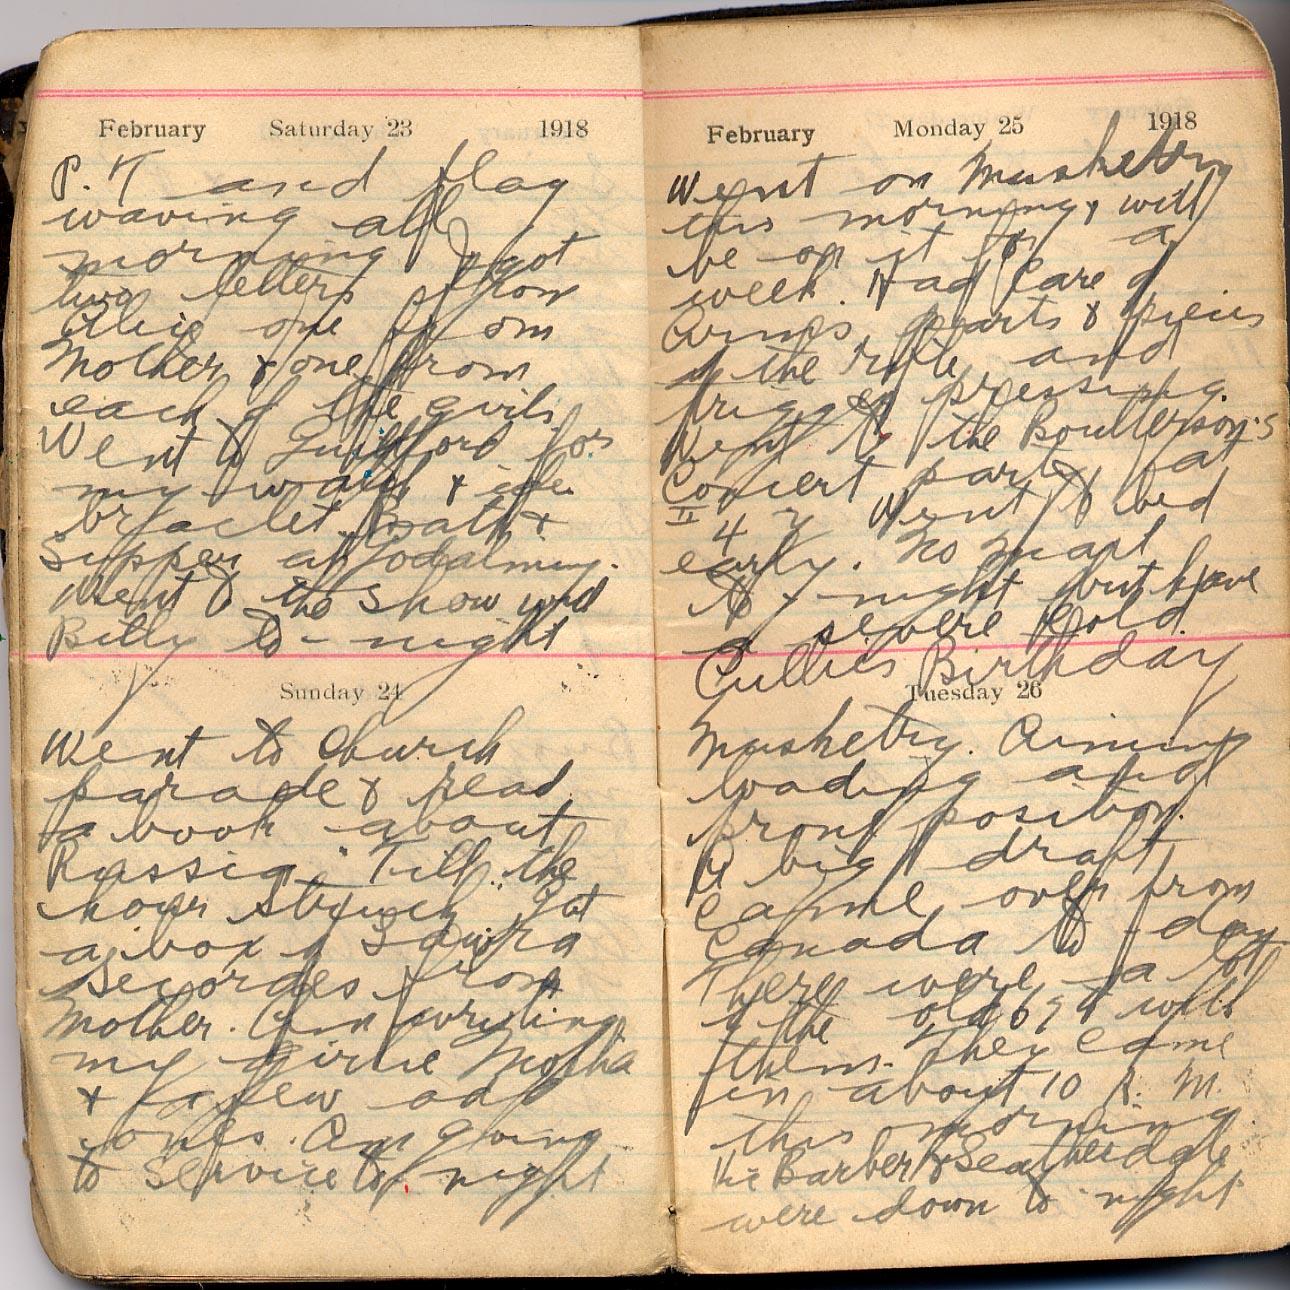 February Saturday 23 1918
P. T and flag
waving all
morning got
two letters from
Alie one from
Mother & one from
each of the girls.
Went to Guilford for
my watch &
braclet. Bath &
Supper at Godalming.
Went to the show and
Billy to-night
Sunday 24
Went to Church
parade & read
a book about
Russia. "Till the
hour struck" Got
a box of Laura
Secordes from
Mother. Am writing
my girlie Mother
& a few odd
ones. Am going
to Service to night
February Monday 25 1918
Went on Musketry
this morning, will
be on it for a
week. Had Care of
Arms, parts & pieces
of the rifle and
trigger pressing.
Went to the Boulterson's
Concert party at
II
4 Y Went to bed
early. No mail
to-night but have
a severe Cold.
Cullies Birthday
Tuesday 26
Musketry. Aiming
loading and
prone position.
A big draft
came over from
Canada to-day
There were a lot
of the old 69th with
them. They came
in about 10 A. M.
this morning
Vic Barber & Seatherdale
were down to-night